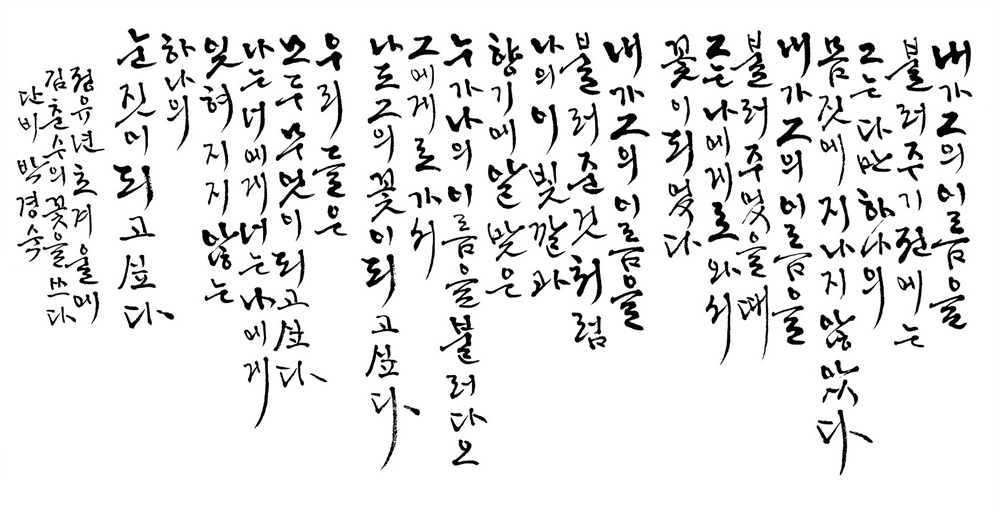 내가 그의 이름을
불러주기 전에는
그는 다만 하나의
몸짓에 지나지 않았다
내가 그의 이름을
불러 주었을 때
그는 나에게로 와서
꽃이 되었다
내가 그의 이름을
불러 준 것처럼
나의 이 빛깔과
향기에 알맞은
누가 나의 이름을 불러다오
그에게로 가서
나도 그의 꽃이 되고 싶다
우리들은
모두 무엇이 되고 싶다
나는 너에게 너는 나에게
잊혀지지 않는
하나의
눈짓이 되고 싶다
정유년 초겨울에
김춘수의 꽃을 쓰다
단비 박경숙